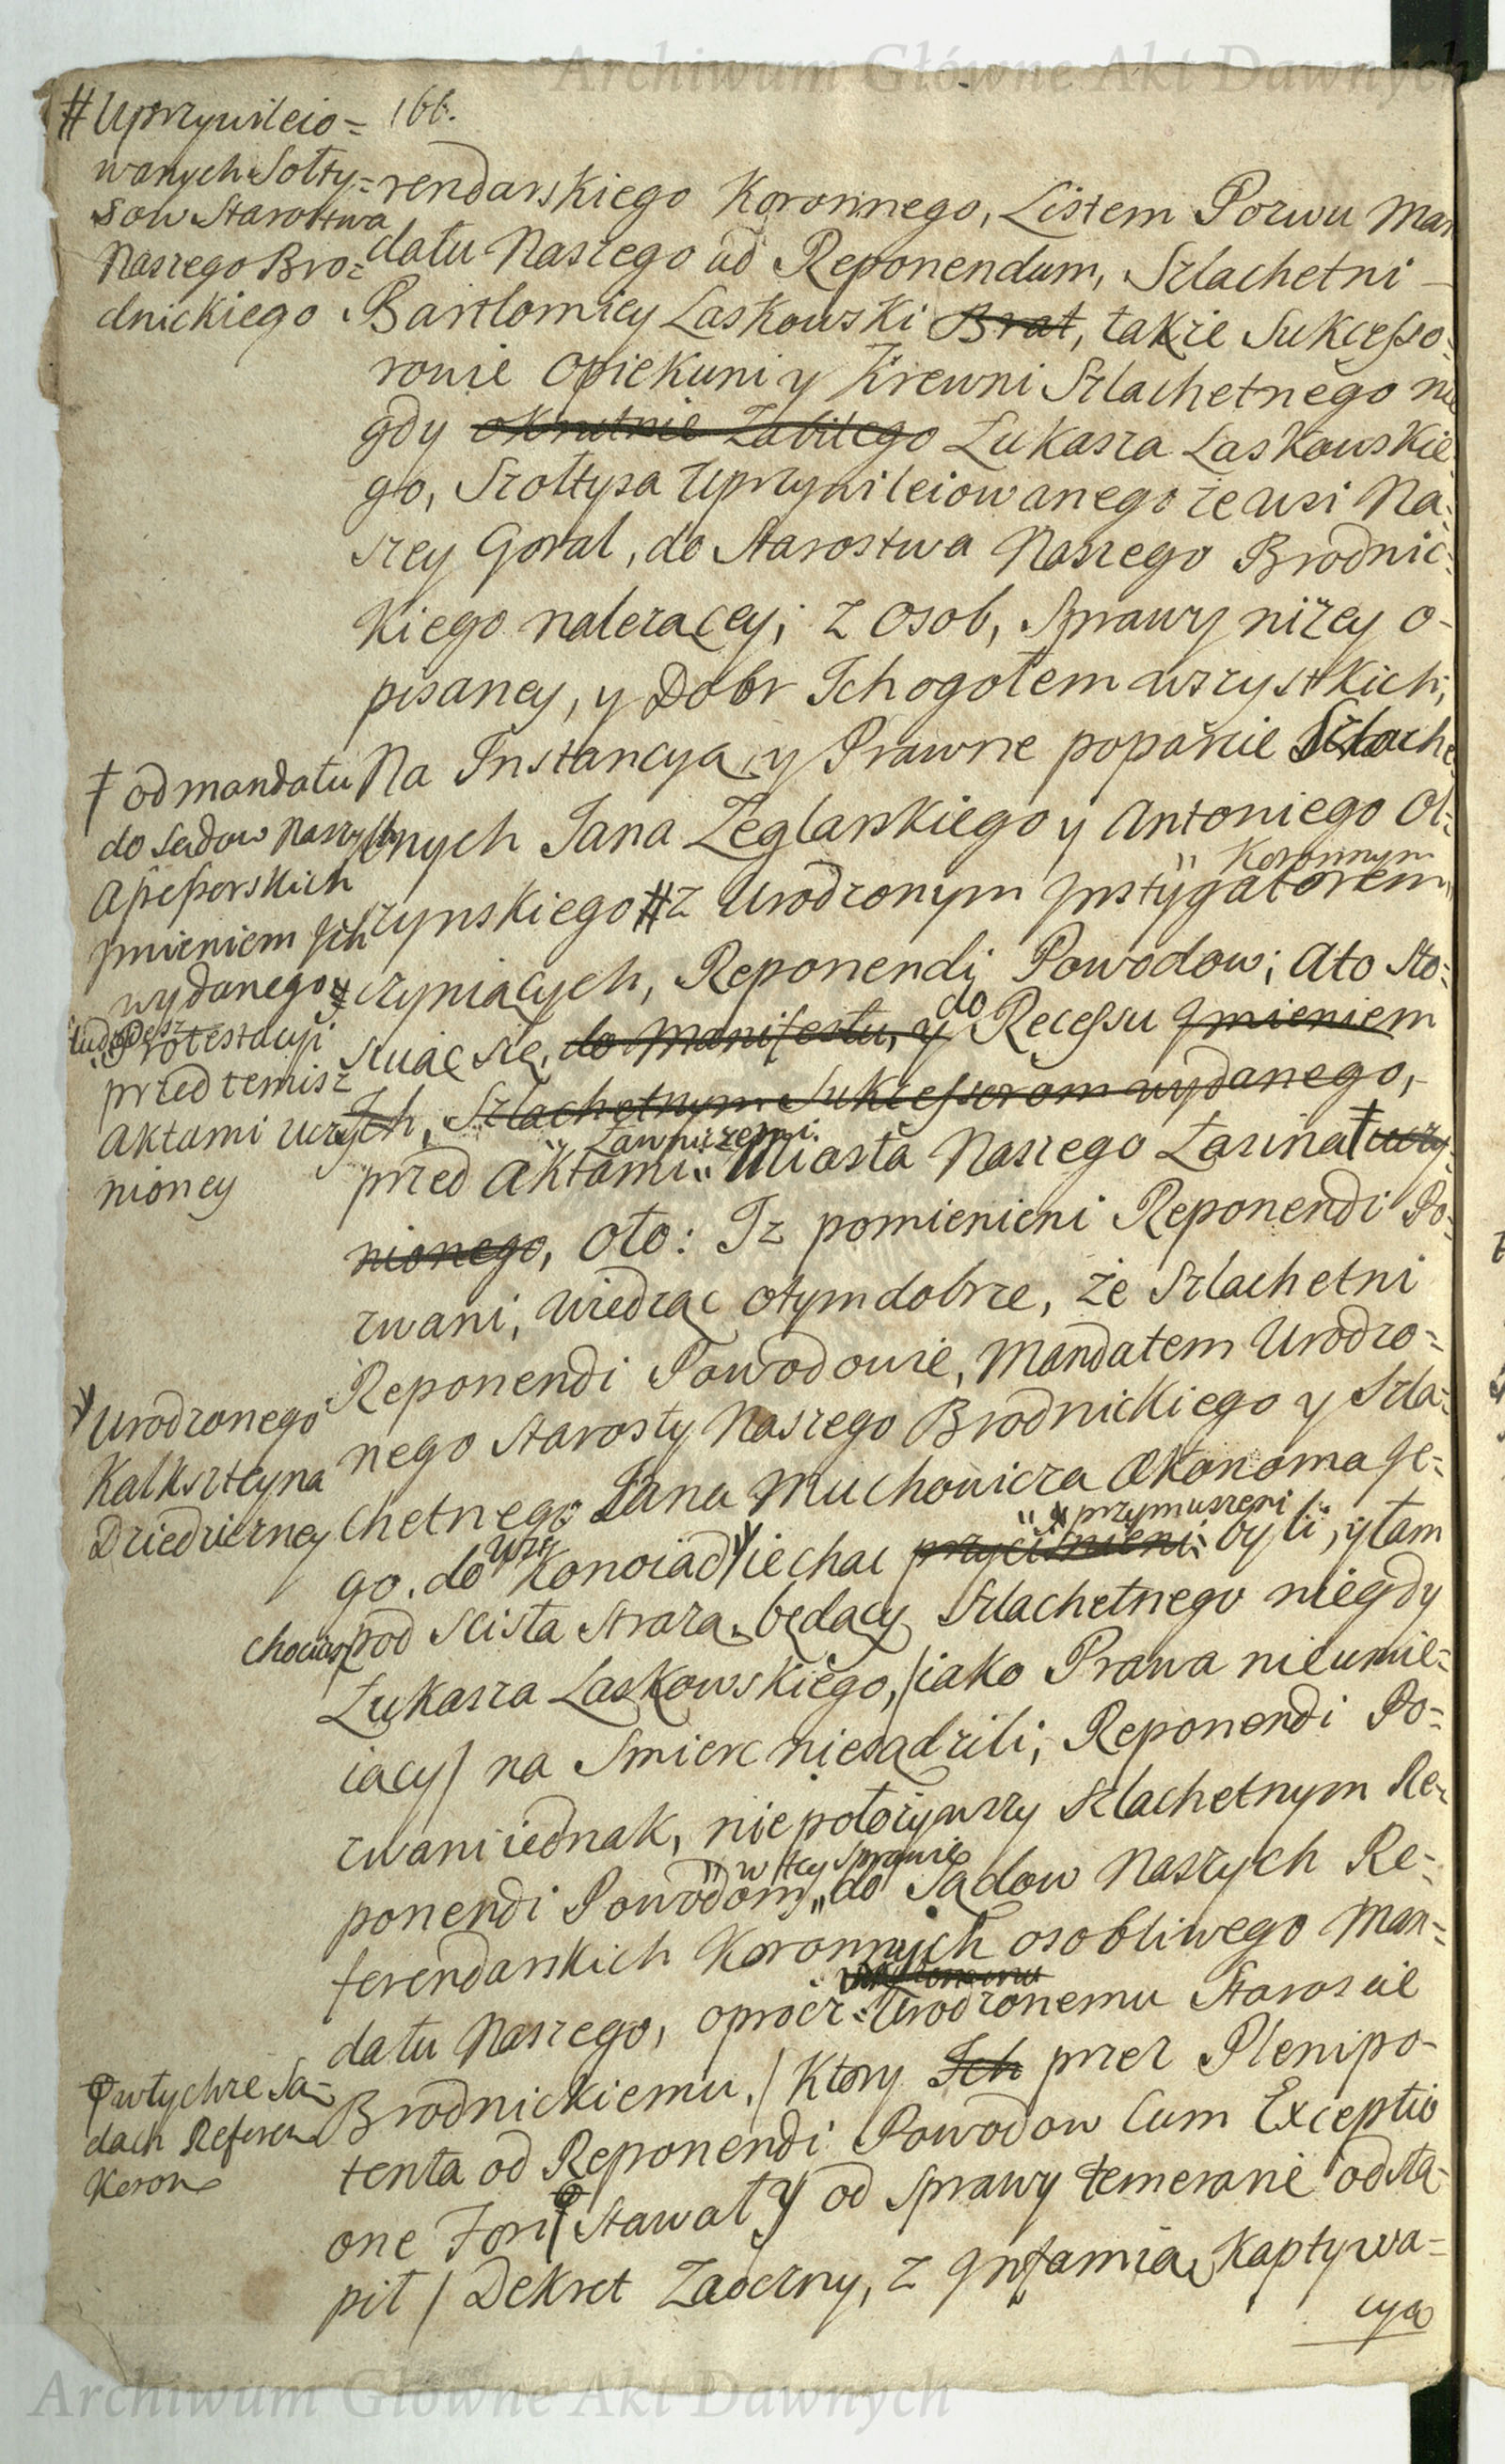 Archiwum Główne Akt Dawnych
166.
# Uprzywileio=
wanych Sołty=
sow Starostwa
Naszego Bro=
dnickiego
rendarskiego Koronnego, Listem Pozwu Man
datu Naszego ad Reponendum, Szlachetni
Bartlomiey Laskowski Brat, takze Sukcesso=
rowie Opiekuni y Krewni Szlachetnego nie
gdy okrutnie Zabitego Lukasza Laskowskie
go, Szołtysa Uprzywileiowanego ze wsi Na=
szey Goral, do Starostwa Naszego Brodnic=
kiego nalezący; z Osob, Sprawy niżey o-
pisaney, y Dobr Ich ogołem wszystkich;
Na Instancyą y Prawne poparcie Szlache
tnych Jana Zeglarskiego y Antoniego Ol=
Koronnym
rzynskiego # z Urodzonym Instygatorem
czyniących, Reponendi Powodow; Ato Sto=
do
suiąc się, do Manifestu, y Recessu Imieniem
Ich, Szlachetnym Sukcessorom wydanego,
Ławniczemi
przed Aktami Miasta Naszego Łasina † uczy=
nionego, oto: Iz pomienieni Reponendi Po=
zwani, Wiedząc otym dobrze, że Szlachetni
Reponendi Powodowie, Mandatem Urodzo=
nego Starosty Naszego Brodnickiego y Szla=
chetnego Jana Muchowicza Œkonoma Je=
Wsi przymuszeni
go. do Konoiad iechac przycisnieni byli, y tam
pod scisłą Strazą będący Szlachetnego niegdy
Łukasza Laskowskiego, / iako Prawa nieumie=
iący / na Smierc niesądzili; Reponendi Po=
zwani iednak, niepołozywszy Szlachetnym Re=
w tey Sprawie
ponendi Powodom do Sądow Naszych Re=
ferendarskich Koronnych osobliwego Man=
datu Naszego, oprocz Urodzonemu Staroscie
Brodnickiemu, / Ktory Ich przez Plenipo-
tenta od Reponendi Powodow Cum Exceptio
one Fori Stawał y od Sprawy temerane odstą-
pił / Dekret Zaoczny, z Infamią, Kaptywa=
cyą
† od mandatu
do Sądow Naszych
Assessorskich
Imieniem Ich
wydanego y
Protestacyi
przed temisz
Aktami uczy
nioney
Urodzonego
Kalkszteyna
Dziedziczney
chociasz
w tychze Są-
dach Referen
Koron
Archiwum Główne Akt Dawnych